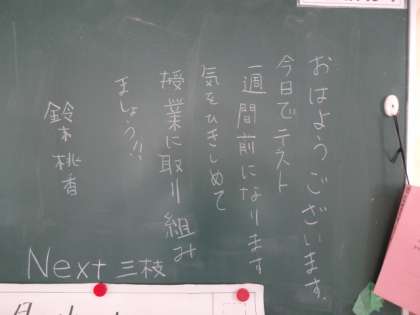 おはようございます。
今日でテスト
一週間前になります
気をひきしめて
授業に取り組み
ましょう!!
鈴木桃香
Next 三枝